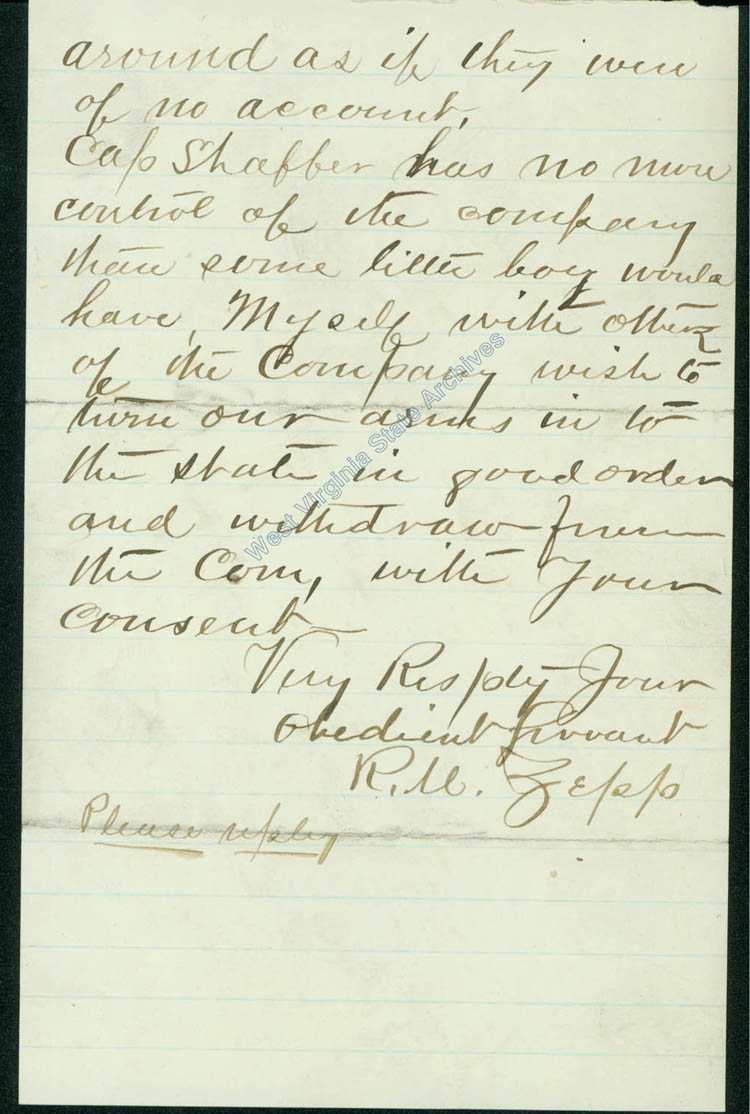 around as if they were
of no account.
Cap Shaffer has no more
control of the company
than some little boy would
have, Myself with others
of the Company wish to
turn our arms in to
the state in good order
and withdraw from
the Com, with Your
consent
Very Resptly Your
obedient Servant
R. M. Zepp
Please reply
West Virginia State Archives